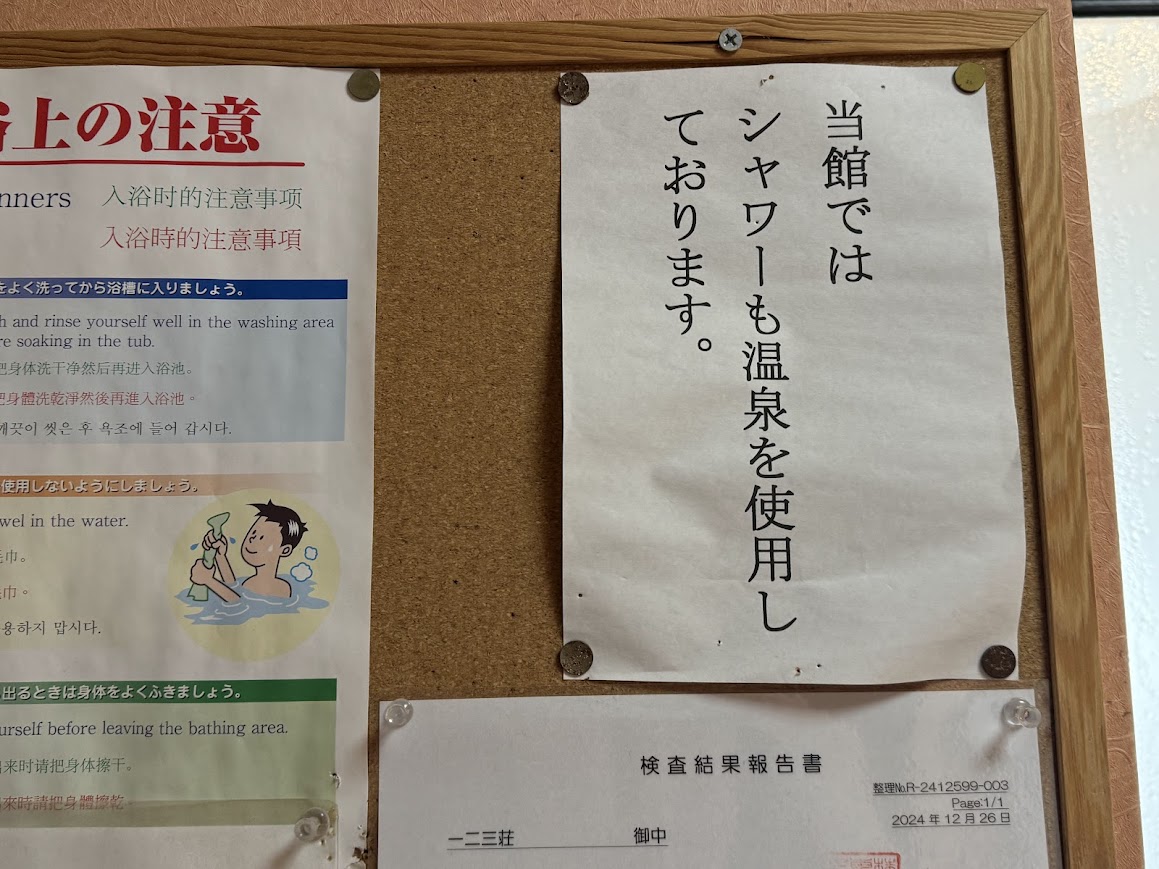 上の注意
入浴时的注意事项
入浴時的注意事項
をよく洗ってから浴槽に入りましょう。
and rinse yourself well in the washing area
soaking in the tub.
把身体洗干净然后再进入浴池。
把身體洗乾淨然後再進入浴池。
씻은 후 욕조에 들어 갑시다.
使用しないようにしましょう。
in the water.
毛巾。
毛巾。
용하지 맙시다.
出るときは身体をよくふきましょう。
before leaving the bathing area.
来时请把身体擦干。
來時請把身體擦乾
当館では
シャワーも温泉を使用し
ております。
検査結果報告書
整理№R-2412599-003
Page:1/1
2024年12月26日
一二三荘 御中